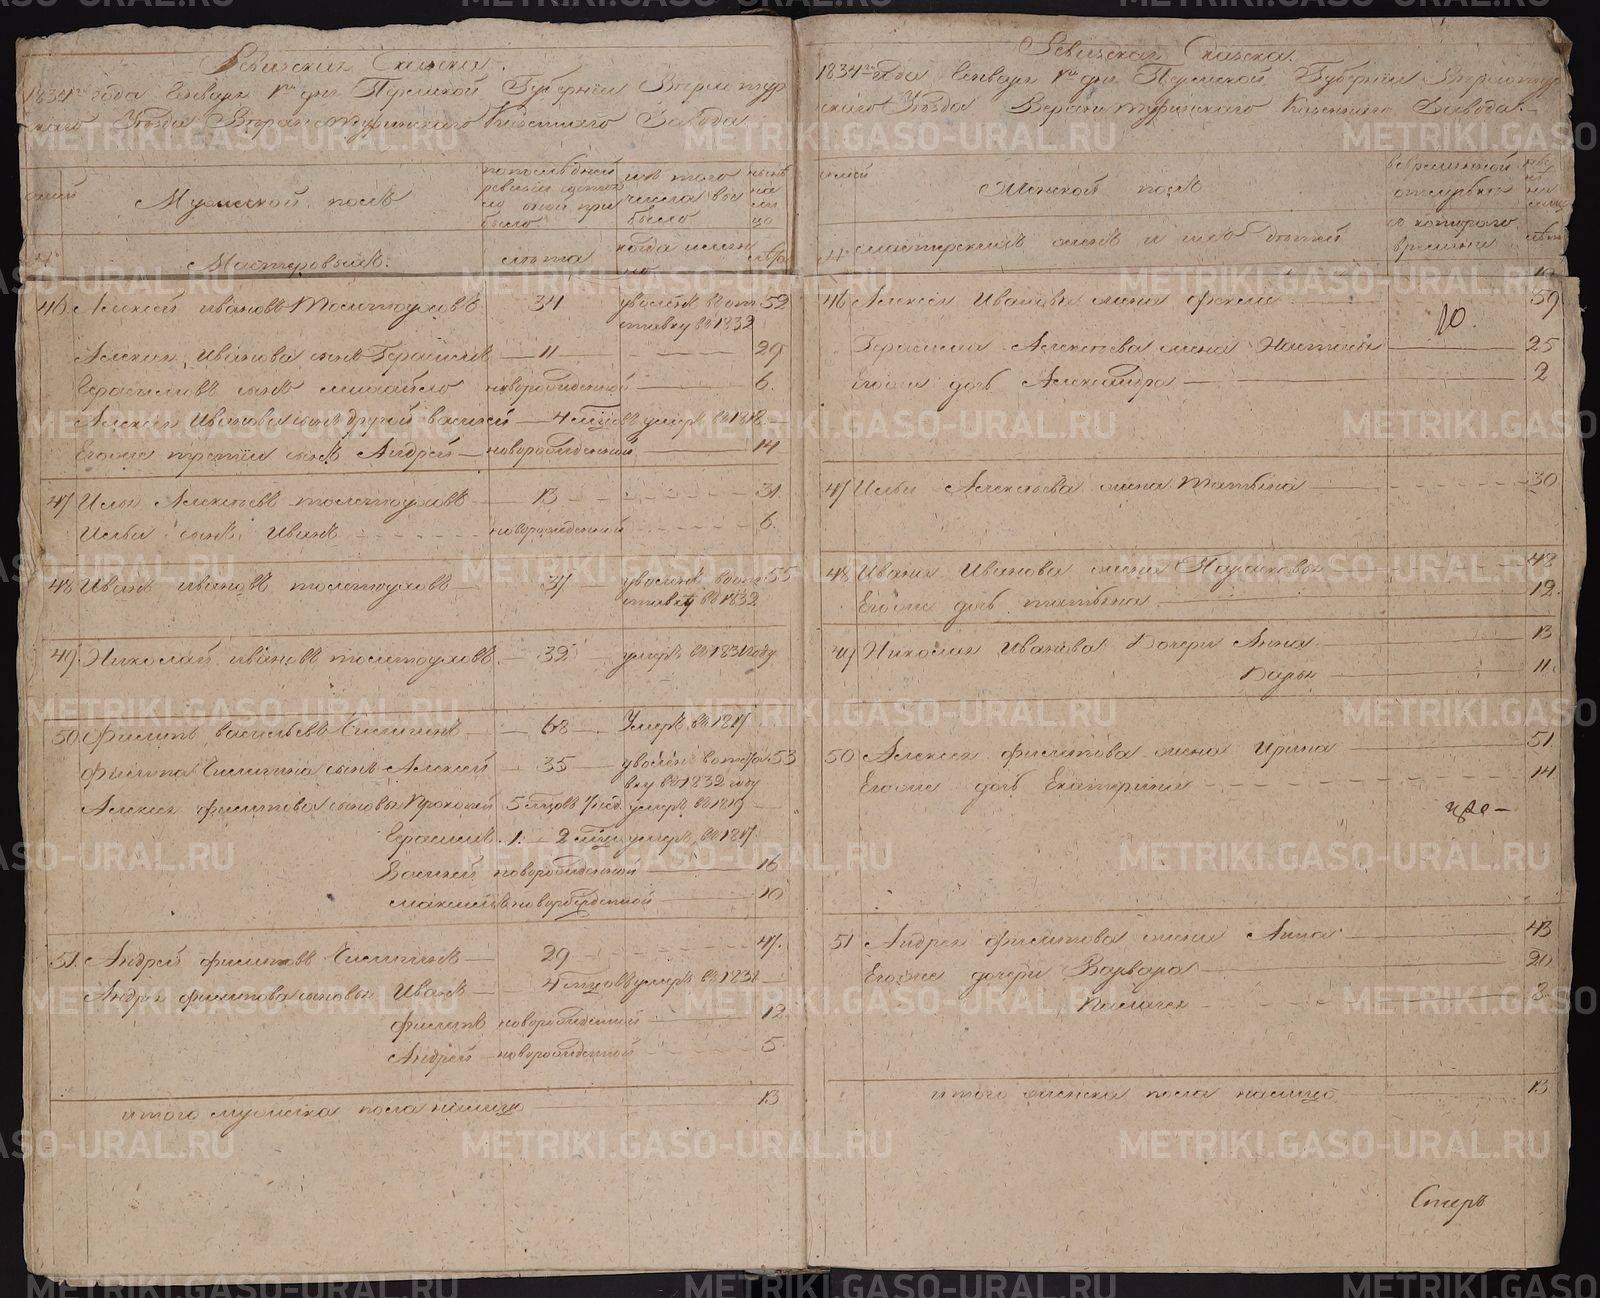 Ревизская Сказка.
1834го года Генваря 1го дня Пермской Губернии Верхотур
скаго Уезда Верхнетуринскаго Казеннаго Завода
Мужеской полъ
по последней
ревизии состоя
ло
было
изъ того
числа вы
было
ныне
на
ли
цо
№
Мастеровыхъ.
лета
когда имен
но
лета
46 Алексей Ивановъ Толстоуховъ 34 уволенъ въ от 52
ставку въ 1832
Алексея Иванова сынъ Герасимъ — 11 29
Герасимовъ сынъ Михайло новорожденной 6.
Алексея Иванова сынъ другой Василей — 4 мцовъ умеръ въ 1818
Егоже третий сынъ Андрей — новорожденный 14
47 Илья Алексеевъ Толстоуховъ — 13 31
Ильи сынъ Иванъ новорожденной 6.
48 Иванъ Ивановъ Толстоуховъ — 37 уволенъ въ от 55
ставку въ 1832
49 Николай Ивановъ Толстоуховъ. — 32 умеръ въ 1831 году
50 Филипъ Васильевъ Чисмитинъ — 68 — Умеръ въ 1817
Филипа Чисмитина сынъ Алексей — 35 — уволенъ въ отста 53
вку въ 1832 году
Алексея Филипова сыновья Прокопей 5 мцовъ 7 нед. умеръ въ 1819
Герасимъ. 1. — 2 мцы умеръ въ 1817
Василей новорожденной 16
Максимъ новорожденной 10
51. Андрей Филиповъ Чисмитинъ — 29 47.
Андрея Филипова сыновья Иванъ — 4 мцовъ умеръ въ 1831
Филипъ новорожденной 12
Андрей — новорожденной 5
итого мужеска пола налицо 13
Ревизская Сказка.
1834го года Генваря 1го дня Пермской Губернии Верхотур
скаго Уезда Верхнетуринскаго Казеннаго Завода.
семей
Женской полъ
во временной
отлучке
ны
не
на
лицо
№ мастерскихъ женъ и ихъ детей
съ котораго
времени
лета
46 Алексея Иванова жена Фекла 59
10.
Герасима Алексеева жена Настасья 25
Егоже дочь Александра 2
47 Ильи Алексеева жена Татьяна 30
48 Ивана Иванова жена 48
Егоже дочь Татьяна 12.
49 Николая Иванова Дочери Анна 13
Дарья 11.
50 Алексея Филипова жена Ирина 51
Егоже дочь Екатерина 14
51 Андрея Филипова жена Анна 43
Егоже дочери Варвара 20
Пелагея 3
итого женска пола налицо 13
METRIKI.GASO-URAL.RU